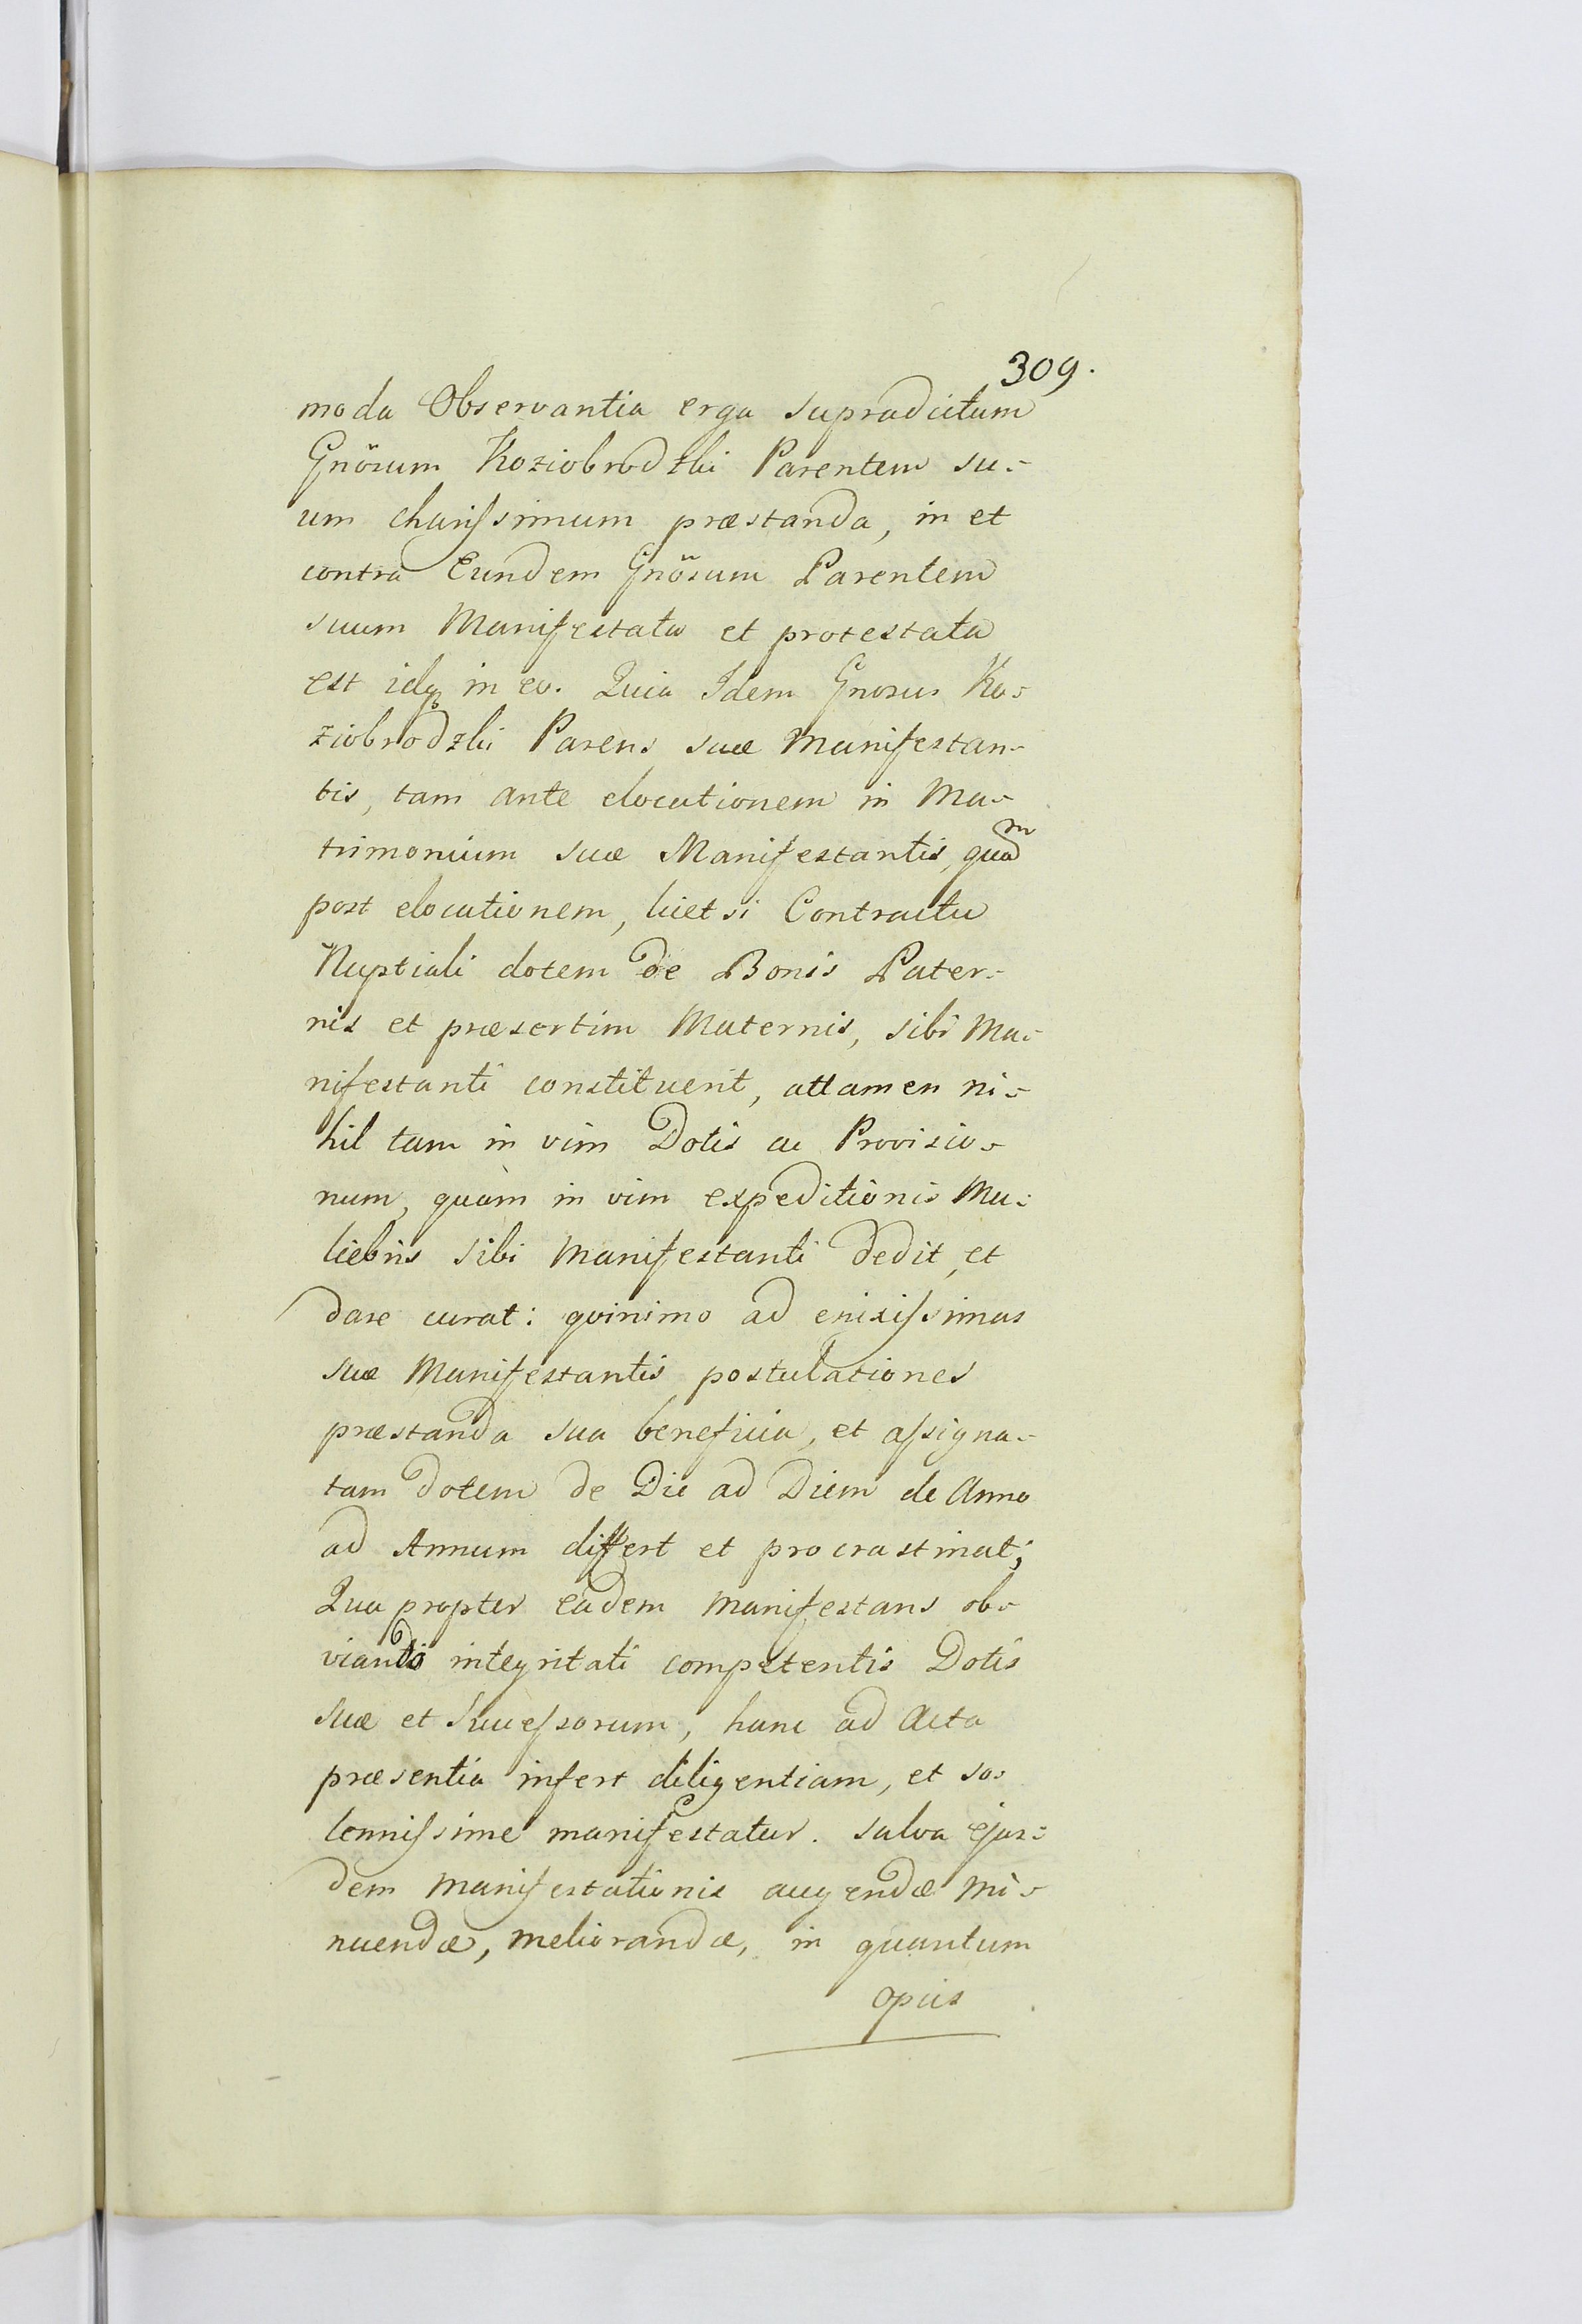 309.
moda Observantia erga supradictum
Gnösum Koziobrodzki Parentem su-
um charissimum præstanda, in et
contra Eundem Gnösum Parentem
suum Manifestata et protestata
est idq in eo. Quia Idem Gnosus Ko-
ziobrodzki Parens suæ Manifestan-
tis, tam ante elocutionem in Ma-
trimonium suæ Manifestantis, quam
post elocutionem, licet si Contractu
Nuptiali dotem de Bonis Pater-
nis et præsertim Maternis, sibi Ma-
nifestanti constituerit, attamen ni-
hil tam in vim Dotis ac Provisio-
num, quàm in vim expeditionis Mu-
liebris sibi Manifestanti dedit, et
dare curat: quinimo ad enixissimas
suæ Manifestantis postulationes
præstanda sua beneficia, et assigna-
tam dotem de Die ad Diem de Anno
ad Annum differt et procrastinat;
Qua propter eadem Manifestans ob-
viando integritati competentis Dotis
suæ et Successorum, hanc ad Acta
præsentia infert diligentiam, et so-
lennissime manifestatur. salva ejus-
dem Manifestationis augendæ Mi-
nuendæ, Meliorandæ, in quantum
opus